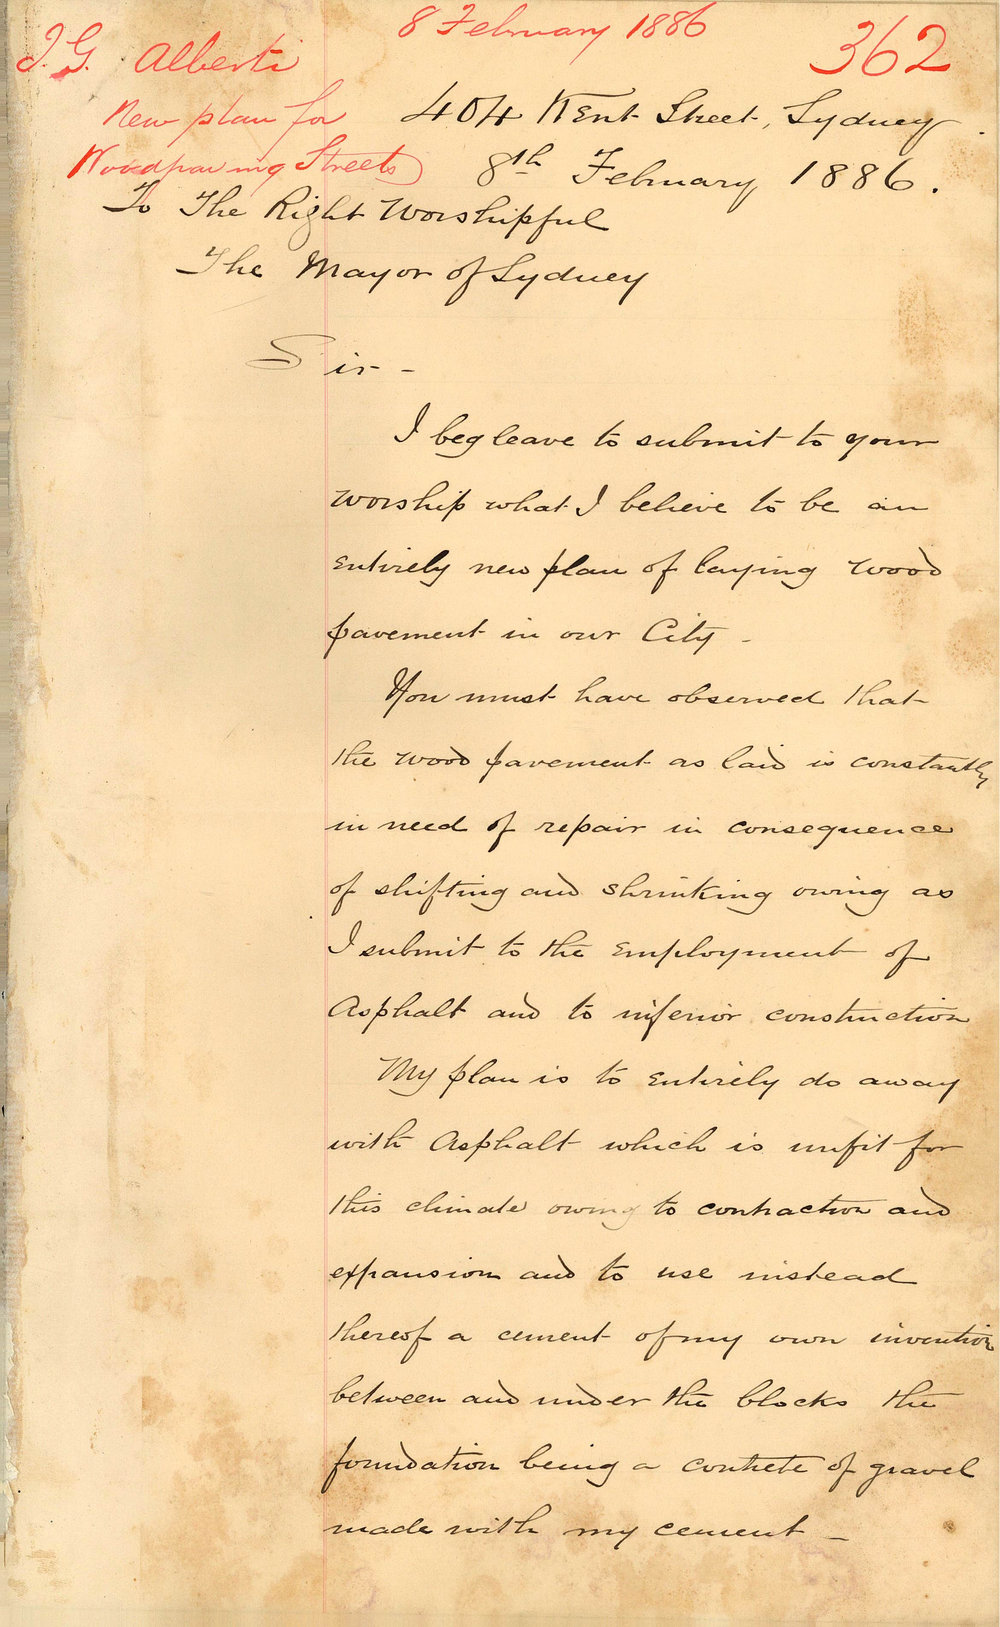 8 February 1886
J. G. Alberti
362
New plan for
Woodpaving Streets
404 Kent Street, Sydney.
8th February 1886.
To The Right Worshipful
The Mayor of Sydney
Sir -
I beg leave to submit to your
worship what I believe to be an
entirely new plan of laying wood
pavement in our City -
You must have observed that
the wood pavement as laid is constantly
in need of repair in consequence
of shifting and shrinking owing as
I submit to the employment of
Asphalt and to inferior construction
My plan is to entirely do away
with Asphalt which is unfit for
this climate owing to contraction and
expansion and to use instead
thereof a cement of my own invention
between and under the blocks the
foundation being a contrete of gravel
made with my cement -